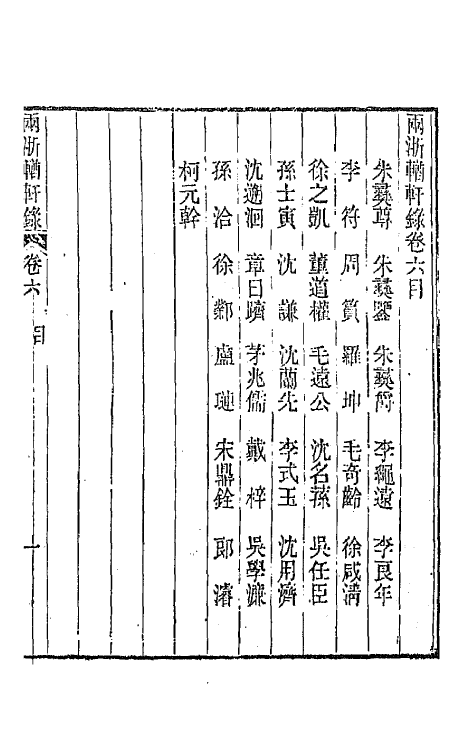 兩浙輶軒錄卷六目
朱彝尊 朱彝鑒 朱彝爵 李繩遠 李良年
李符 周篔 羅坤 毛奇齡 徐咸清
徐之凱 董道權 毛遠公 沈名蓀 吳任臣
孫士寅 沈謙 沈蘭先 李式玉 沈用濟
沈遴洄 章日躋 茅兆儒 戴梓 吳學濂
孫洽 徐鄰 盧璉 宋鼎銓 郎濬
柯元幹
兩浙輶軒錄 卷六 目 一